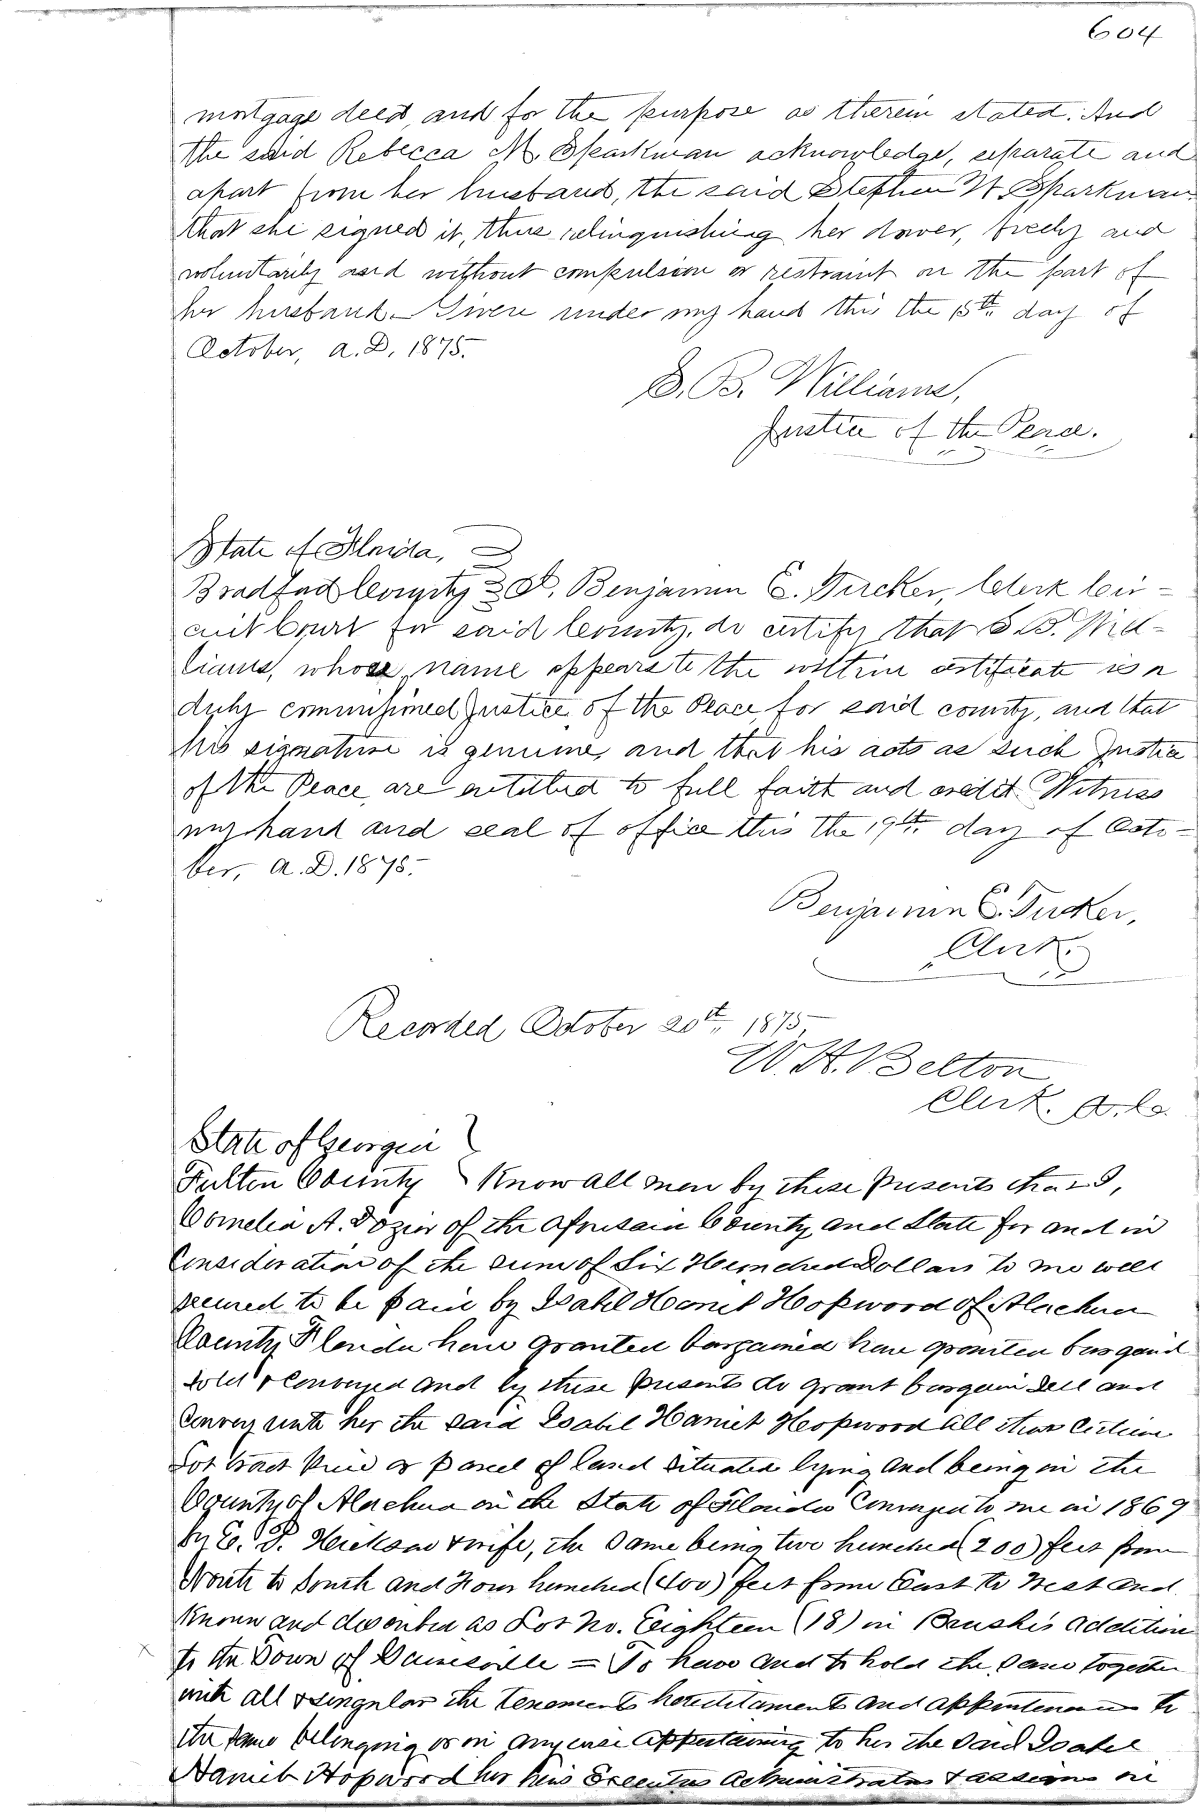 604
mortgage deed, and for the purpose as therein stated. And
the said Rebecca M. Sparkman acknowledge, separate and
apart from her husband, the said Stephen W. Sparkman
that she signed it, thus relinquishing her dower, freely and
voluntarily and without compulsion or restraint on the part of
her husband. Given under my hand this the 15th day of
October, A.D. 1875.
S. B. Williams,
Justice of the Peace.
State of Florida,
Bradford County I, Benjamin E. Tucker, Clerk Cir=
cuit Court for said County, do certify that S. B. Wil=
liams, whose name appears to the within certificate is a
duly commissioned Justice of the Peace, for said county, and that
his signature is genuine, and that his acts as such Justice
of the Peace, are entitled to full faith and credit. Witness
my hand and seal of office this the 19th day of Octo=
ber, A.D. 1875.
Benjamin E. Tucker,
Clerk.
Recorded October 20th, 1875,
W. H. Belton
Clerk. A. Co.
State of Georgia
Fulton County Know all men by these presents that I,
Cornelia A. Dozier of the aforesaid County and State for and in
Consideration of the sum of Six Hundred Dollars to me well
secured to be paid by Isabel Harriet Hopwood of Alachua
County Florida have granted bargained have granted bargaind
sold & conveyed and by these presents do grant bargain sell and
Convey unto her the said Isabel Harriet Hopwood all that certain
Lot tract piece or parcel of land situated lying and being in the
County of Alachua in the State of Florida Conveyed to me in 1869
by E. P. & wife, the same being two hundred (200) feet from
North to South and Four hundred (400) feet from East to West and
Known and described as Lot No. Eighteen (18) in Brush's addition
to the Town of Gainesville = To have and to hold the same together
with all & singular the tenements hereditaments and appurtenances to
the same belonging or in anywise appertaining to her the said Isabel
Harriet Hopwood her heirs Executors administrators & assigns in